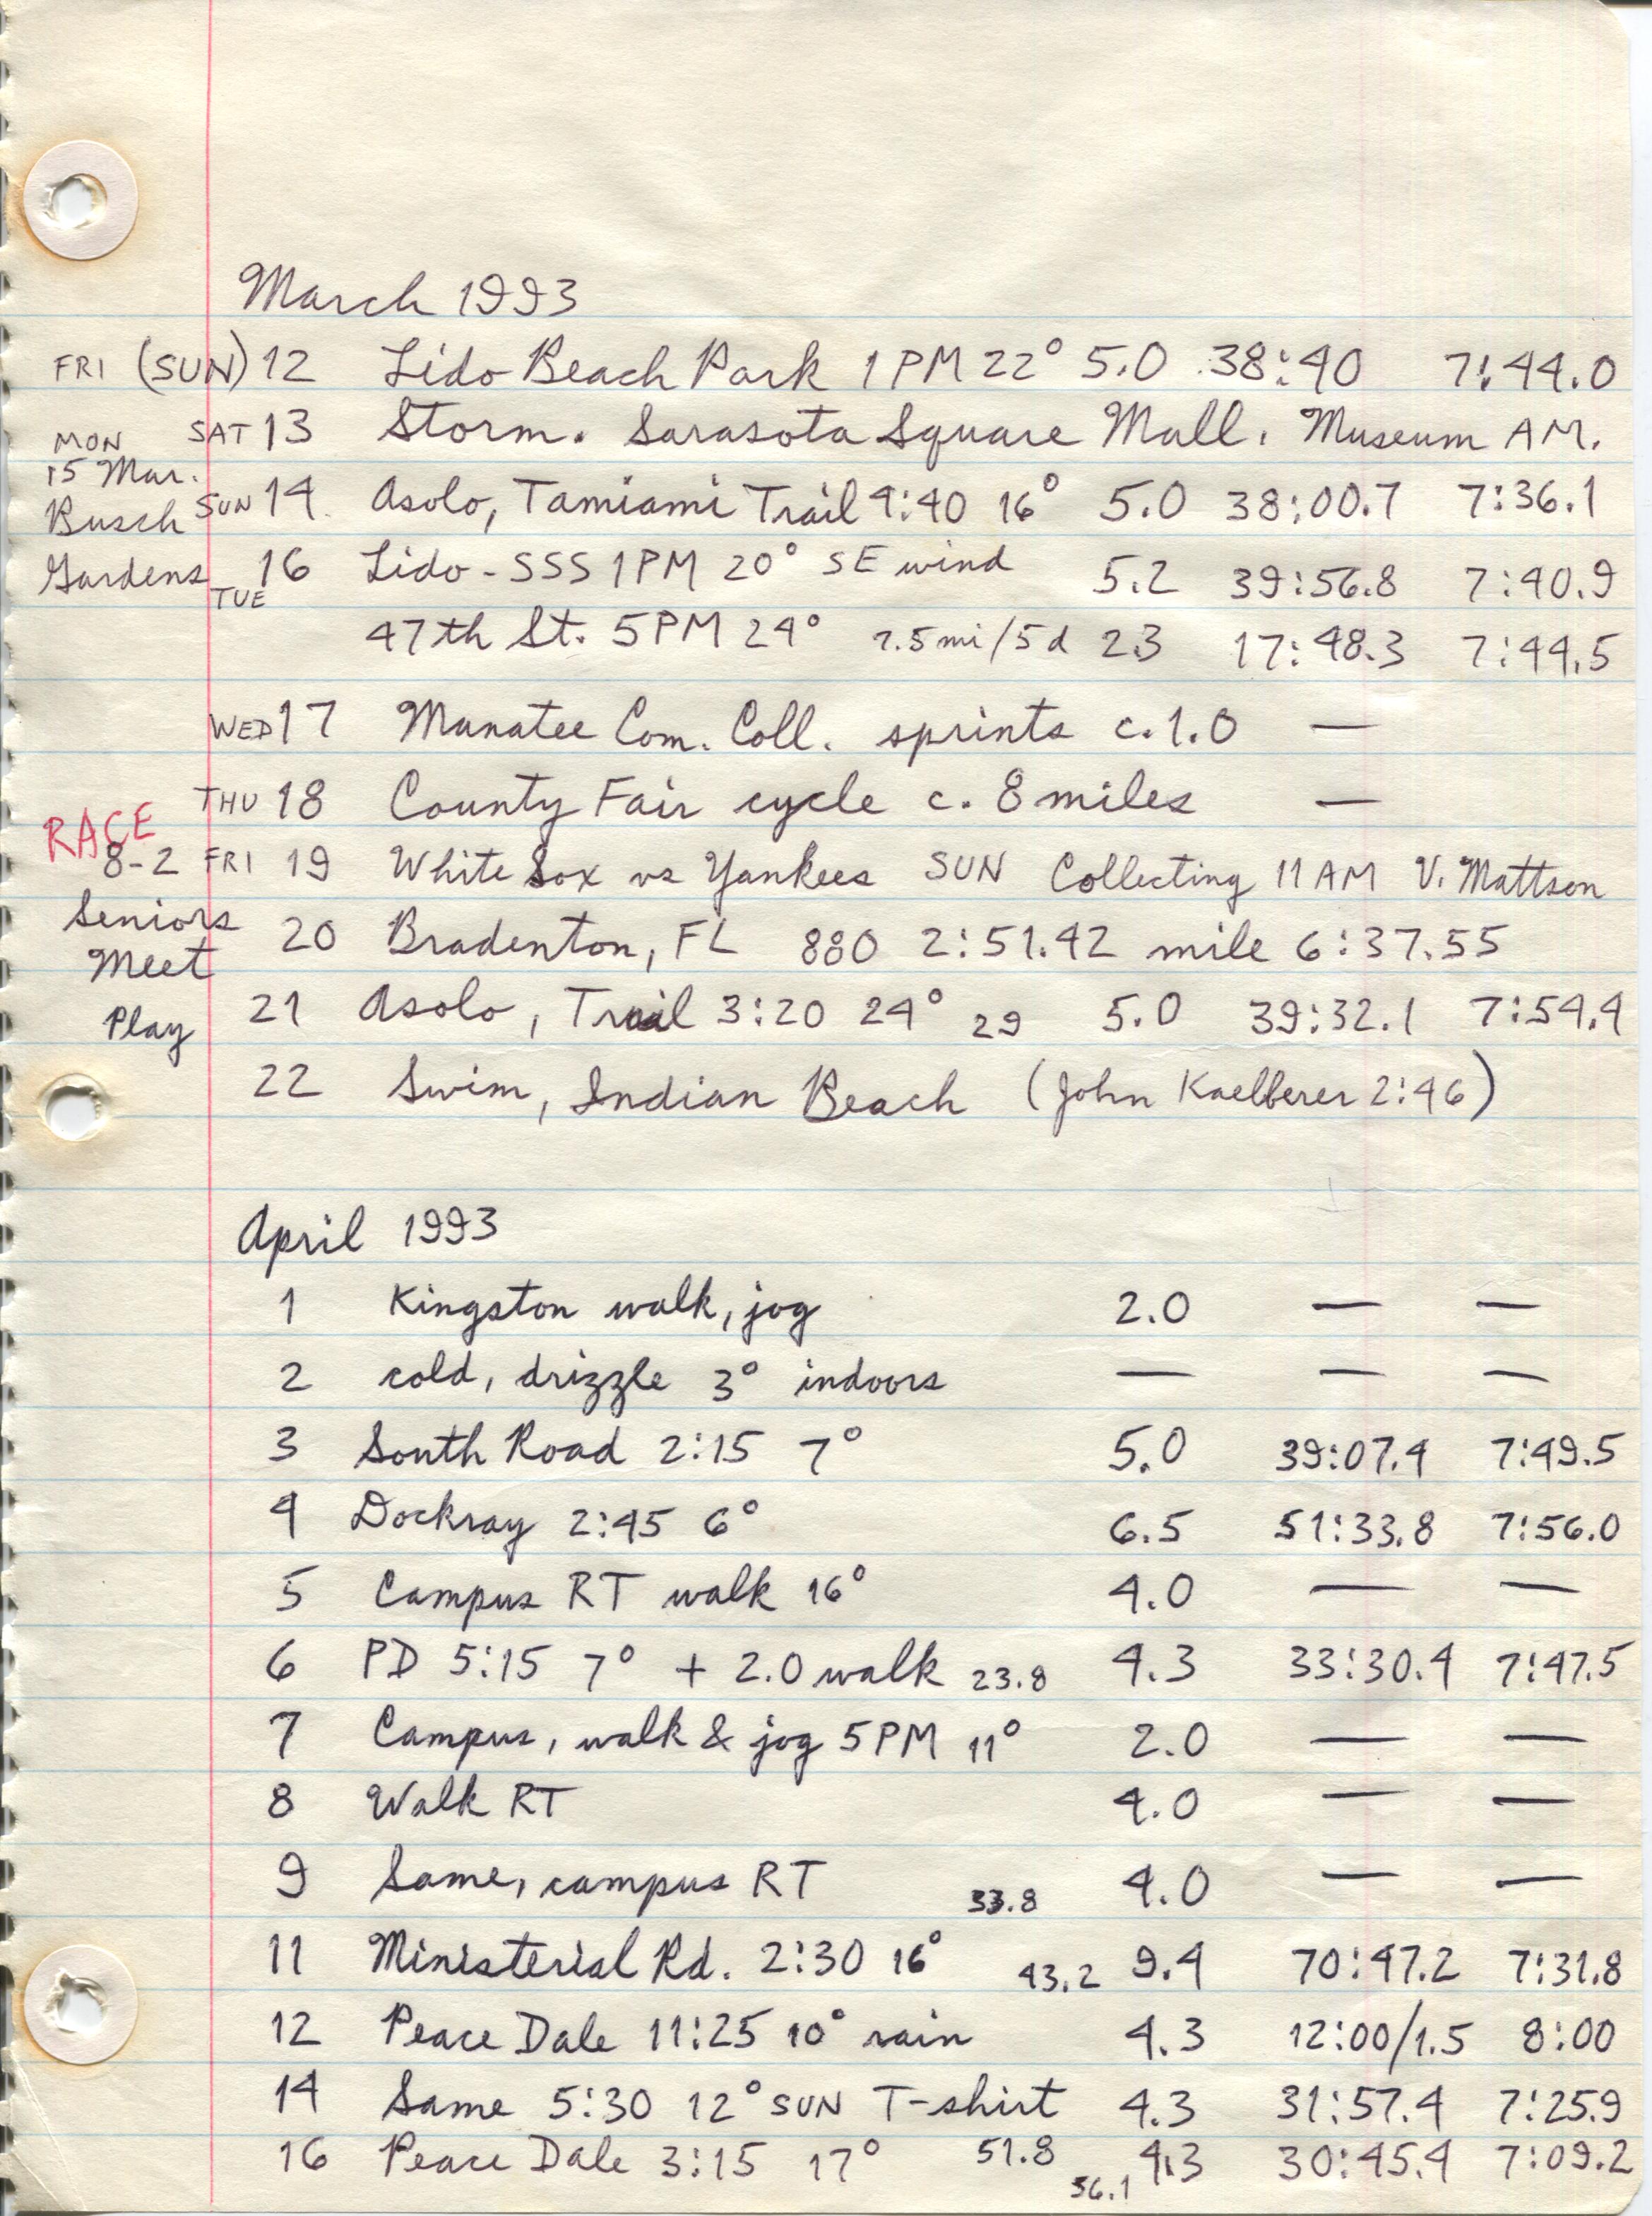 March 1993
FRI (SUN) 12 Lido Beach Park 1 PM 22° 5.0 38:40 7:44.0
SAT 13 Storm. Sarasota Square Mall. Museum AM.
MON
15 Mar.
Busch
Gardens
SUN 14 Asolo, Tamiami Trail 4:40 16° 5.0 38:00.7 7:36.1
TUE 16 Lido - SSS 1 PM 20° SE wind 5.2 39:56.8 7:40.9
47th St. 5 PM 24° 7.5 mi/5d 2.3 17:48.3 7:44.5
WED 17 Manatee Com. Coll. sprints c. 1.0 —
THU 18 County Fair cycle c. 8 miles —
RACE
8-2 FRI 19 White Sox vs Yankees SUN Collecting 11 AM V. Mattson
Seniors
Meet
Play
20 Bradenton, FL 880 2:51.42 mile 6:37.55
21 Asolo, Trail 3:20 24° 29 5.0 39:32.1 7:54.4
22 Swim, Indian Beach (John Kaelberer 2:46)
April 1993
1 Kingston walk, jog 2.0 — —
2 cold, drizzle 3° indoors — — —
3 South Road 2:15 7° 5.0 39:07.4 7:49.5
4 Dockray 2:45 6° 6.5 51:33.8 7:56.0
5 Campus RT walk 16° 4.0 — —
6 PD 5:15 7° + 2.0 walk 23.8 4.3 33:30.4 7:47.5
7 Campus, walk & jog 5 PM 11° 2.0 — —
8 Walk RT 4.0 — —
9 Same, campus RT 33.8 4.0 — —
11 Ministerial Rd. 2:30 16° 43.2 9.4 70:47.2 7:31.8
12 Peace Dale 11:25 10° rain 4.3 12:00/1.5 8:00
14 Same 5:30 12° SUN T-shirt 4.3 31:57.4 7:25.9
16 Peace Dale 3:15 17° 51.8 4.3 30:45.4 7:09.2
56.1